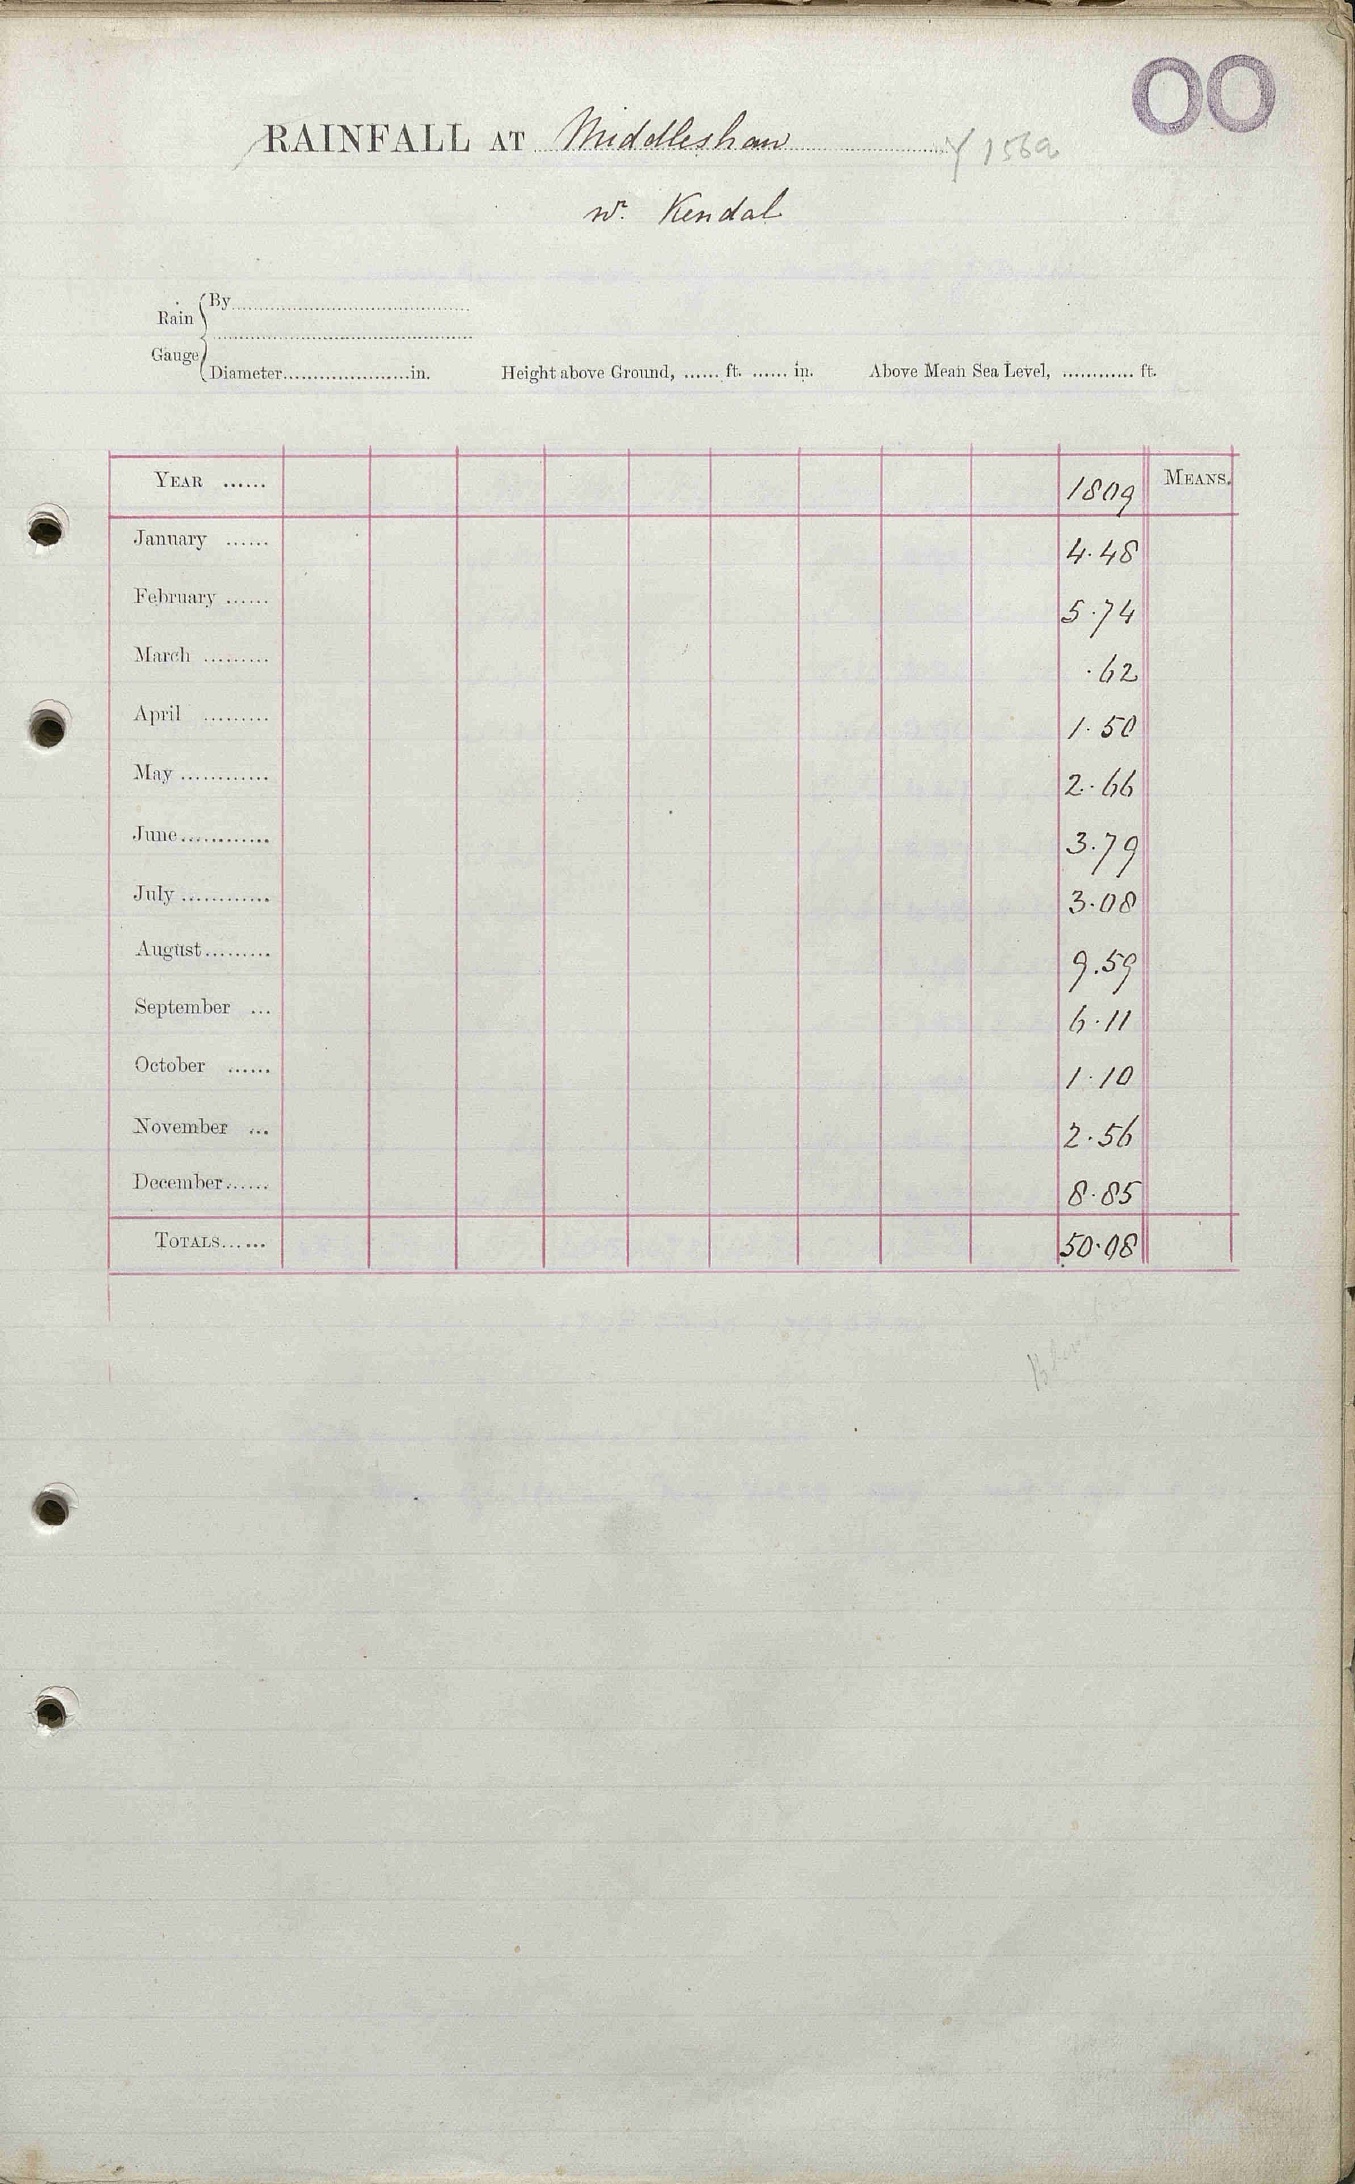 OO
RAINFALL AT Middleshaw
nr. Kendal
Rain Gauge
By
Diameter.....................in. Height above Ground, ...... ft. ...... in. Above Mean Sea Level, ............ ft.
YEAR ...... 1809 MEANS.
January ...... 4.48
February ...... 5.74
March ......... .62
April ......... 1.50
May ............ 2.66
June............ 3.79
July ............ 3.08
August......... 9.59
September ... 6.11
October ...... 1.10
November ... 2.56
December...... 8.85
TOTALS...... 50.08